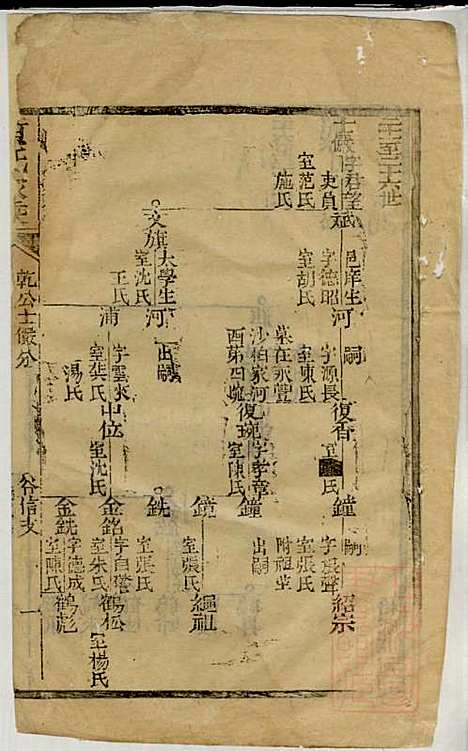 二十至二十六世
士儼 字君望 吏員
室范氏
施氏
斌 邑庠生
字德昭
室胡氏
河 嗣
字源長
室陳氏
墓在永豐
沙柏家河
西第四
復香
室 氏
鐘 嗣
字 聲
室張氏
附祖堂
紹宗
復琬 字孝章
室陳氏
鐘 出嗣
鏡
室張氏
繩祖
文旗 太學生
室沈氏
王氏
河 出嗣
浦
字雲來
室龔氏
湯氏
中位
室沈氏
銑
室張氏
金銘
字自
室朱氏
鶴松
室楊氏
金銑
字德成
室陳氏
鶴彪
乾公士儼分
信支
一